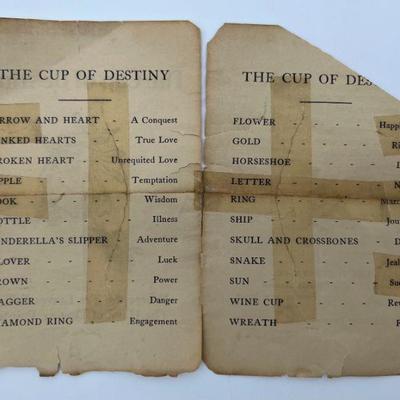 THE CUP OF DESTINY
RROW AND HEART - A Conquest
NKED HEARTS - - True Love
ROKEN HEART - Unrequited Love
PPLE - - - - Temptation
OOK - - - - Wisdom
OTTLE - - - - Illness
NDERELLA'S SLIPPER - Adventure
LOVER - - - - Luck
ROWN - - - - Power
AGGER - - - - Danger
AMOND RING - - Engagement
THE CUP OF DES
FLOWER - - - - Happi
GOLD - - - - Ri
HORSESHOE - - - L
LETTER - - - - N
RING - - - - Marr
SHIP - - - - Jou
SKULL AND CROSSBONES - D
SNAKE - - - - Jeal
SUN - - - - Suc
WINE CUP - - - Rev
WREATH - - - - F